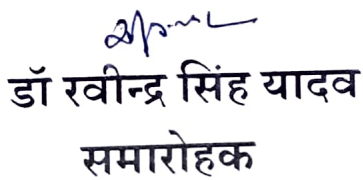 डॉ रवीन्द्र सिंह यादव
समारोहक